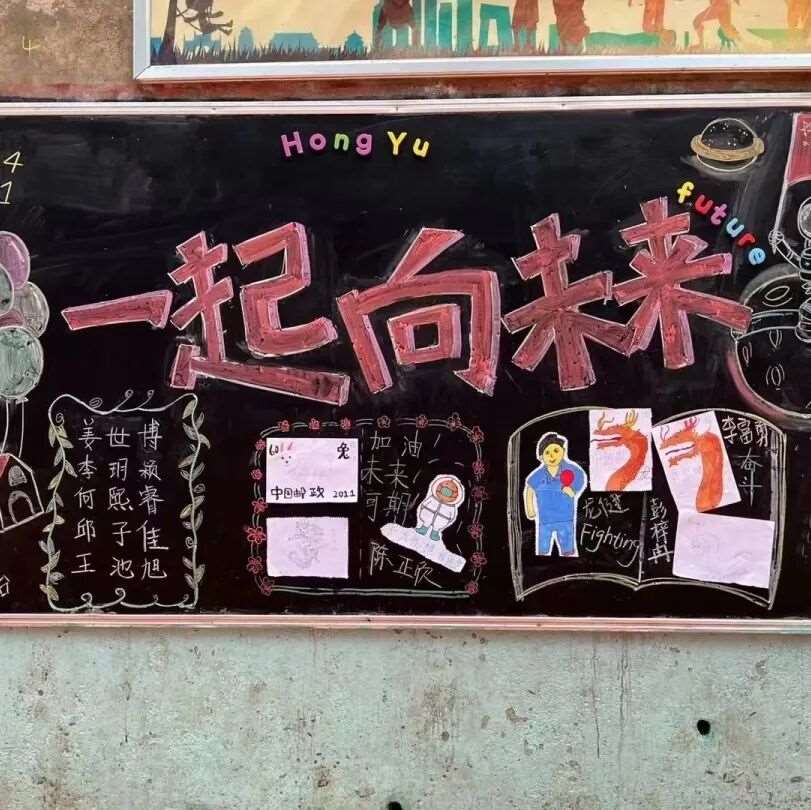 Hong Yu
future
4
1
一起向未来
姜世博
李玥颖
何熙睿
邱子佳
王池旭
兔
中国邮政 2011
加油
未来
可期
陈正欣
Fighting
彭梓冉
奋斗